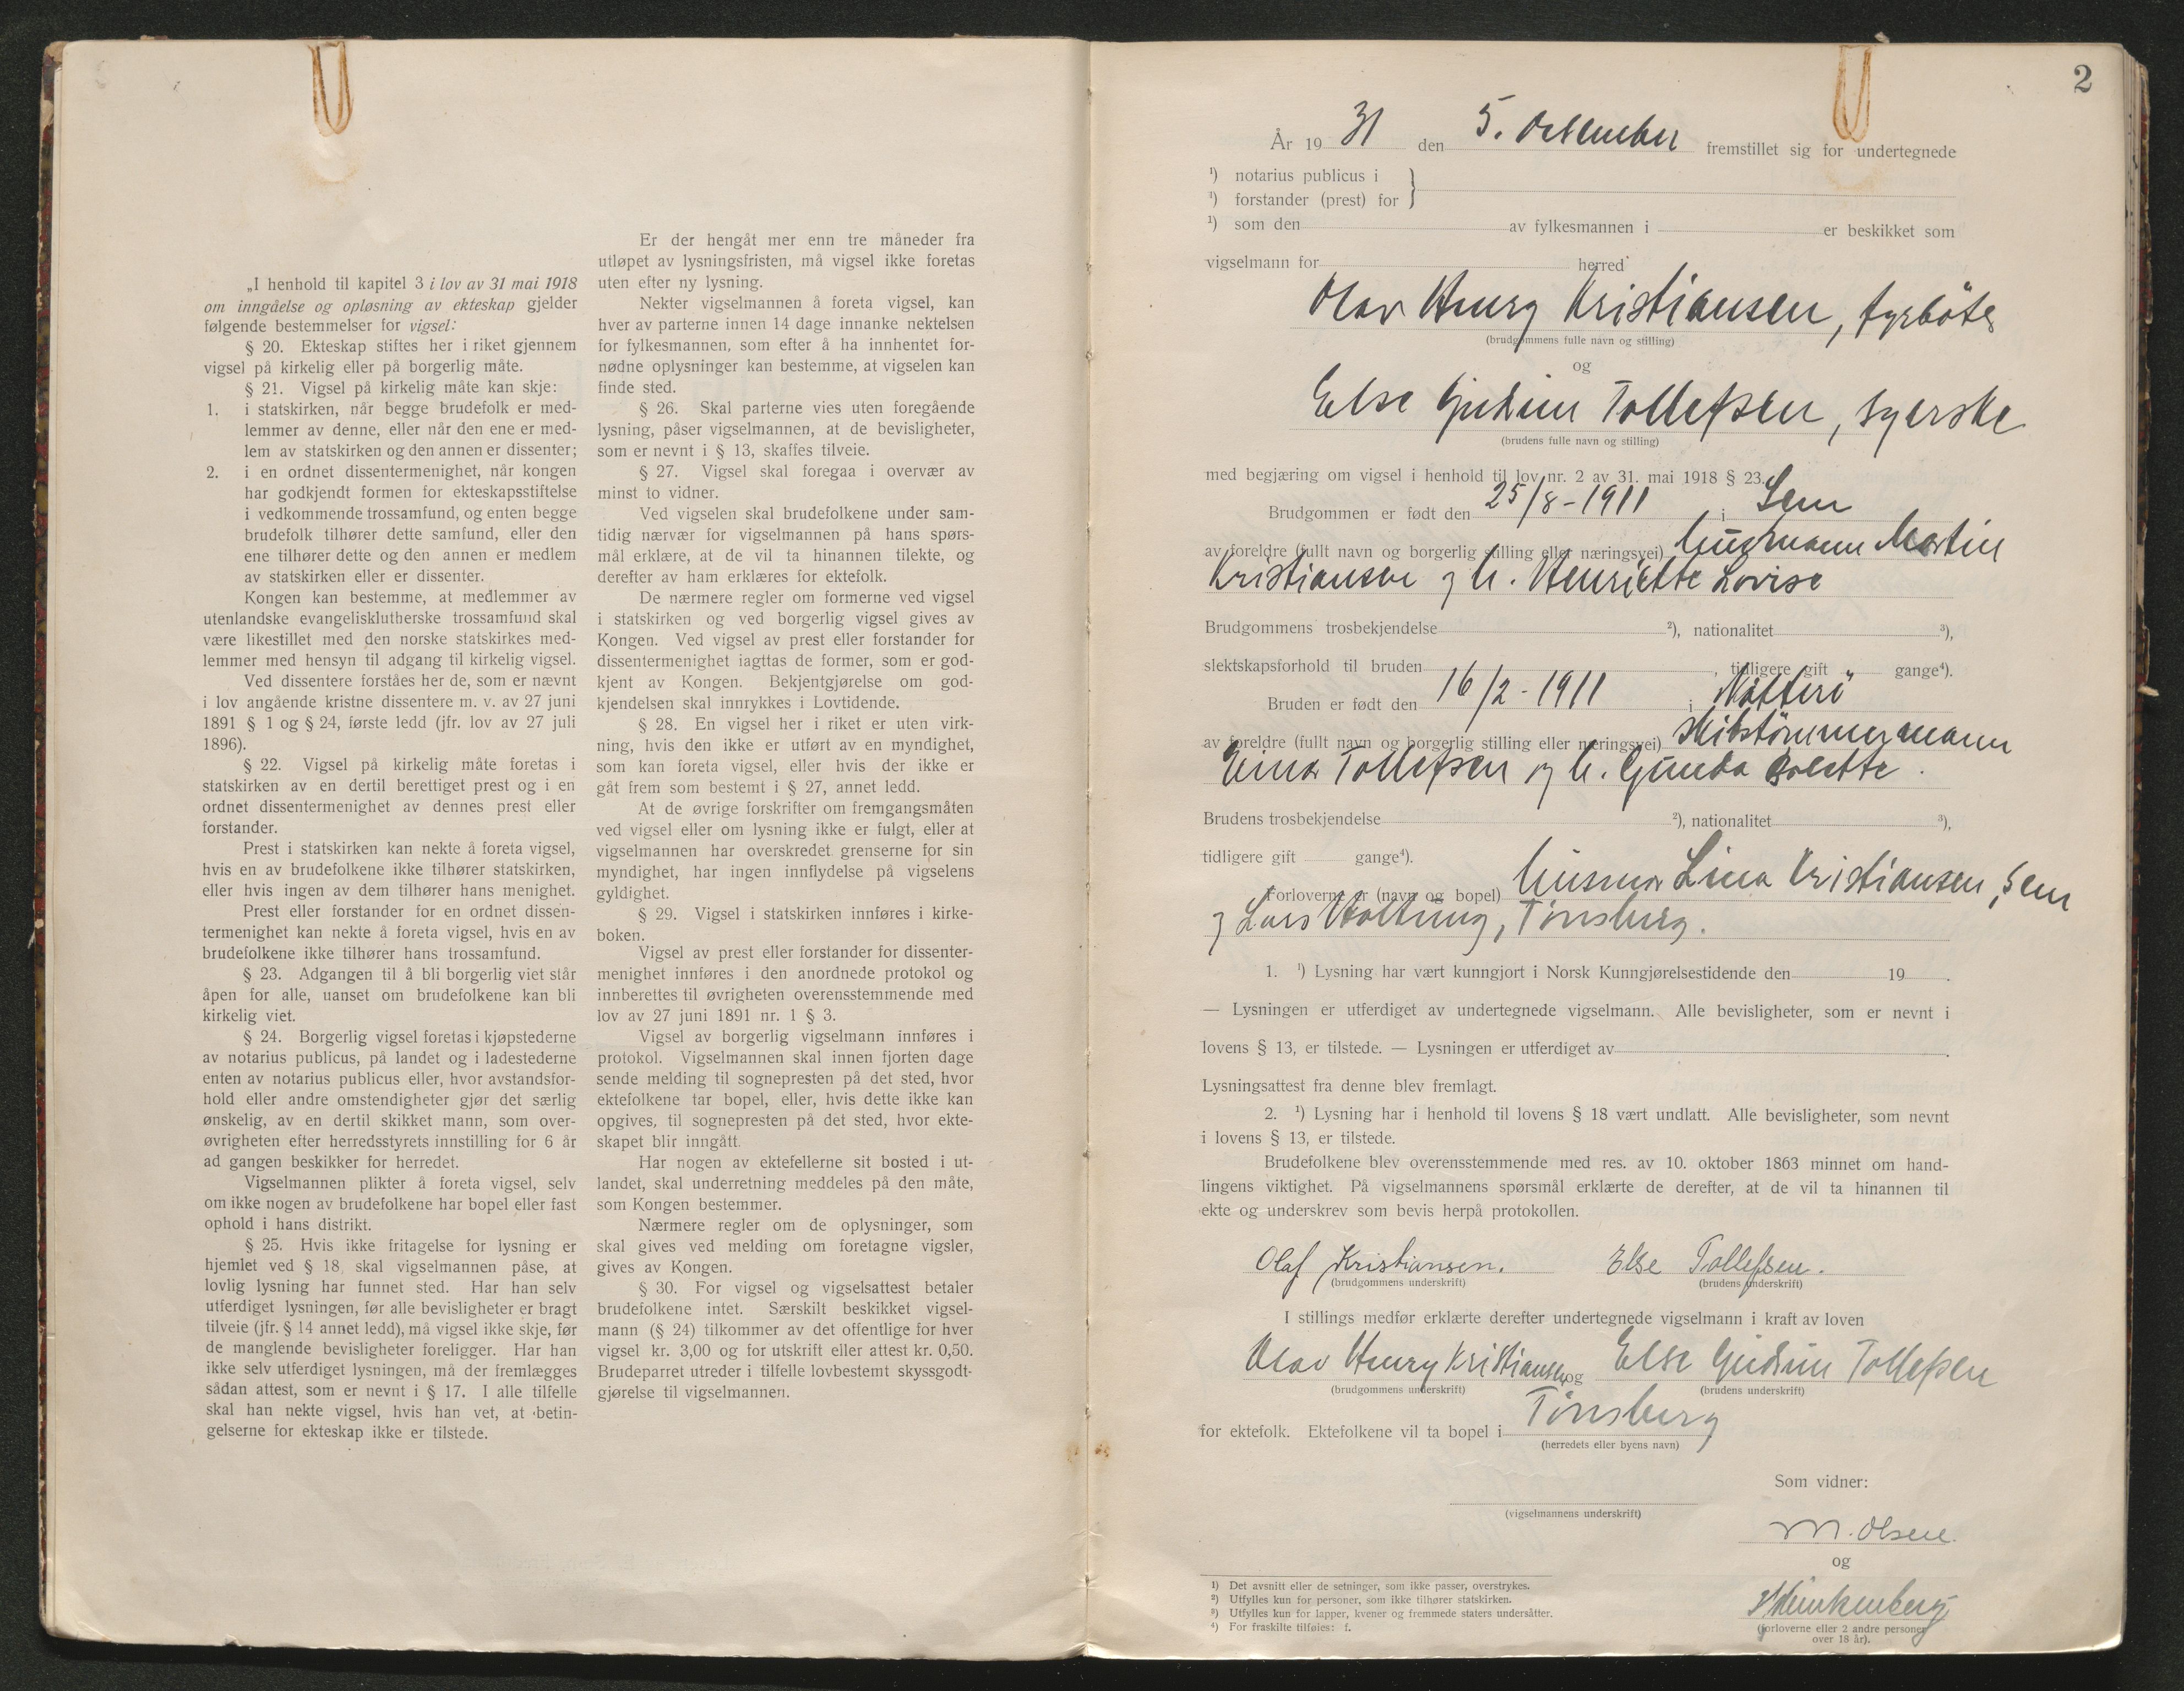 „I henhold til kapitel 3 i lov av 31 mai 1918
om inngåelse og opløsning av ekteskap gjelder
følgende bestemmelser for vigsel:
§ 20. Ekteskap stiftes her i riket gjennem
vigsel på kirkelig eller på borgerlig måte.
§ 21. Vigsel på kirkelig måte kan skje:
1. i statskirken, når begge brudefolk er med-
lemmer av denne, eller når den ene er med-
lem av statskirken og den annen er dissenter;
2. i en ordnet dissentermenighet, når kongen
har godkjendt formen for ekteskapsstiftelse
i vedkommende trossamfund, og enten begge
brudefolk tilhører dette samfund, eller den
ene tilhører dette og den annen er medlem
av statskirken eller er dissenter.
Kongen kan bestemme, at medlemmer av
utenlandske evangelisklutherske trossamfund skal
være likestillet med den norske statskirkes med-
lemmer med hensyn til adgang til kirkelig vigsel.
Ved dissentere forståes her de, som er nævnt
i lov angående kristne dissentere m. v. av 27 juni
1891 § 1 og § 24, første ledd (jfr. lov av 27 juli
1896).
§ 22. Vigsel på kirkelig måte foretas i
statskirken av en dertil berettiget prest og i en
ordnet dissentermenighet av dennes prest eller
forstander.
Prest i statskirken kan nekte å foreta vigsel,
hvis en av brudefolkene ikke tilhører statskirken,
eller hvis ingen av dem tilhører hans menighet.
Prest eller forstander for en ordnet dissen-
termenighet kan nekte å foreta vigsel, hvis en av
brudefolkene ikke tilhører hans trossamfund.
§ 23. Adgangen til å bli borgerlig viet står
åpen for alle, uanset om brudefolkene kan bli
kirkelig viet.
§ 24. Borgerlig vigsel foretas i kjøpstederne
av notarius publicus, på landet og i ladestederne
enten av notarius publicus eller, hvor avstandsfor-
hold eller andre omstendigheter gjør det særlig
ønskelig, av en dertil skikket mann, som over-
øvrigheten efter herredsstyrets innstilling for 6 år
ad gangen beskikker for herredet.
Vigselmannen plikter å foreta vigsel, selv
om ikke nogen av brudefolkene har bopel eller fast
ophold i hans distrikt.
§ 25. Hvis ikke fritagelse for lysning er
hjemlet ved § 18, skal vigselmannen påse, at
lovlig lysning har funnet sted. Har han selv
utferdiget lysningen, før alle bevisligheter er bragt
tilveie (jfr. § 14 annet ledd), må vigsel ikke skje, før
de manglende bevisligheter foreligger. Har han
ikke selv utferdiget lysningen, må der fremlægges
sådan attest, som er nevnt i § 17. I alle tilfelle
skal han nekte vigsel, hvis han vet, at betin-
gelserne for ekteskap ikke er tilstede.
Er der hengåt mer enn tre måneder fra
utløpet av lysningsfristen, må vigsel ikke foretas
uten efter ny lysning.
Nekter vigselmannen å foreta vigsel, kan
hver av parterne innen 14 dage innanke nektelsen
for fylkesmannen, som efter å ha innhentet for-
nødne oplysninger kan bestemme, at vigselen kan
finde sted.
§ 26. Skal parterne vies uten foregående
lysning, påser vigselmannen, at de bevisligheter,
som er nevnt i § 13, skaffes tilveie.
§ 27. Vigsel skal foregaa i overvær av
minst to vidner.
Ved vigselen skal brudefolkene under sam-
tidig nærvær for vigselmannen på hans spørs-
mål erklære, at de vil ta hinannen tilekte, og
derefter av ham erklæres for ektefolk.
De nærmere regler om formerne ved vigsel
i statskirken og ved borgerlig vigsel gives av
Kongen. Ved vigsel av prest eller forstander for
dissentermenighet iagttas de former, som er god-
kjent av Kongen. Bekjentgjørelse om god-
kjendelsen skal innrykkes i Lovtidende.
§ 28. En vigsel her i riket er uten virk-
ning, hvis den ikke er utført av en myndighet,
som kan foreta vigsel, eller hvis der ikke er
gåt frem som bestemt i § 27, annet ledd.
At de øvrige forskrifter om fremgangsmåten
ved vigsel eller om lysning ikke er fulgt, eller at
vigselmannen har overskredet grenserne for sin
myndighet, har ingen innflydelse på vigselens
gyldighet.
§ 29. Vigsel i statskirken innføres i kirke-
boken.
Vigsel av prest eller forstander for dissenter-
menighet innføres i den anordnede protokol og
innberettes til øvrigheten overensstemmende med
lov av 27 juni 1891 nr. 1 § 3.
Vigsel av borgerlig vigselmann innføres i
protokol. Vigselmannen skal innen fjorten dage
sende melding til sognepresten på det sted, hvor
ektefolkene tar bopel, eller, hvis dette ikke kan
opgives, til sognepresten på det sted, hvor ekte-
skapet blir inngått.
Har nogen av ektefellerne sit bosted i ut-
landet, skal underretning meddeles på den måte,
som Kongen bestemmer.
Nærmere regler om de oplysninger, som
skal gives ved melding om foretagne vigsler,
gives av Kongen.
§ 30. For vigsel og vigselsattest betaler
brudefolkene intet. Særskilt beskikket vigsel-
mann (§ 24) tilkommer av det offentlige for hver
vigsel kr. 3,00 og for utskrift eller attest kr. 0,50.
Brudeparret utreder i tilfelle lovbestemt skyssgodt-
gjørelse til vigselmannen.
2
År 1931 den 5. desember fremstillet sig for undertegnede
1) notarius publicus i }
1) forstander (prest) for
1) som den av fylkesmannen i er beskikket som
vigselmann for herred
Olav Henry Kristiansen, fyrböter
(brudgommens fulle navn og stilling)
og
Else Gudrun Tollefsen, syerske
(brudens fulle navn og stilling)
med begjæring om vigsel i henhold til lov nr. 2 av 31. mai 1918 § 23.
Brudgommen er født den 25/8-1911 i Sem
av foreldre (fullt navn og borgerlig stilling eller næringsvei) Gürdmann Martin
Kristiansen og h. Henriette Lovise
Brudgommens trosbekjendelse 2), nationalitet 3),
slektskapsforhold til bruden , tidligere gift gange4).
Bruden er født den 16/2-1911 i Nøtterö
av foreldre (fullt navn og borgerlig stilling eller næringsvei) Skibstömmermann
Einar Tollefsen og h. Gunda Bolette.
Brudens trosbekjendelse 2), nationalitet 3),
tidligere gift gange4).
Forloverne er (navn og bopel) Lina Kristiansen, Sem
og Lars Holtung, Tönsberg.
1. 1) Lysning har vært kunngjort i Norsk Kunngjørelsestidende den 19 .
— Lysningen er utferdiget av undertegnede vigselmann. Alle bevisligheter, som er nevnt i
lovens § 13, er tilstede. — Lysningen er utferdiget av .
Lysningsattest fra denne blev fremlagt.
2. 1) Lysning har i henhold til lovens § 18 vært undlatt. Alle bevisligheter, som nevnt
i lovens § 13, er tilstede.
Brudefolkene blev overensstemmende med res. av 10. oktober 1863 minnet om hand-
lingens viktighet. På vigselmannens spørsmål erklærte de derefter, at de vil ta hinannen til
ekte og underskrev som bevis herpå protokollen.
Olaf Kristiansen. Else Tollefsen.
(brudgommens underskrift) (brudens underskrift)
I stillings medfør erklærte derefter undertegnede vigselmann i kraft av loven
Olav Henry Kristiansen og Else Gudrun Tollefsen
(brudgommens underskrift) (brudens underskrift)
for ektefolk. Ektefolkene vil ta bopel i Tönsberg
(herredets eller byens navn)
Som vidner:
(vigselmannens underskrift)
M. Olsen.
og
(forloverne eller 2 andre personer
over 18 år).
1) Det avsnitt eller de setninger, som ikke passer, overstrykes.
2) Utfylles kun for personer, som ikke tilhører statskirken.
3) Utfylles kun for lapper, kvener og fremmede staters undersåtter.
4) For fraskilte tilføies: f.